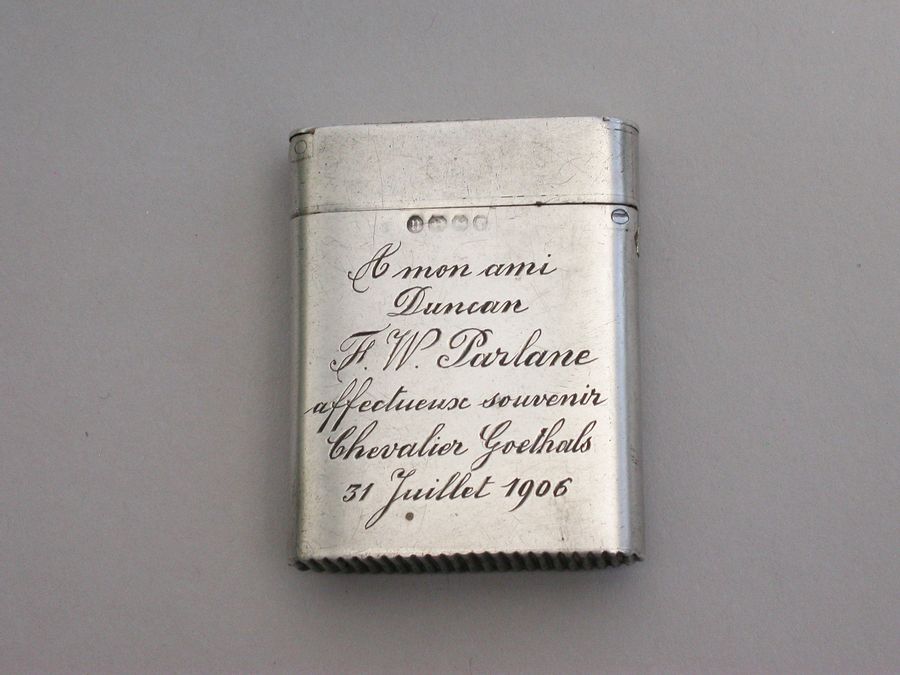 A mon ami
Duncan
F. W. Parlane
affectueux souvenir
Chevalier Goethals
31 Juillet 1906